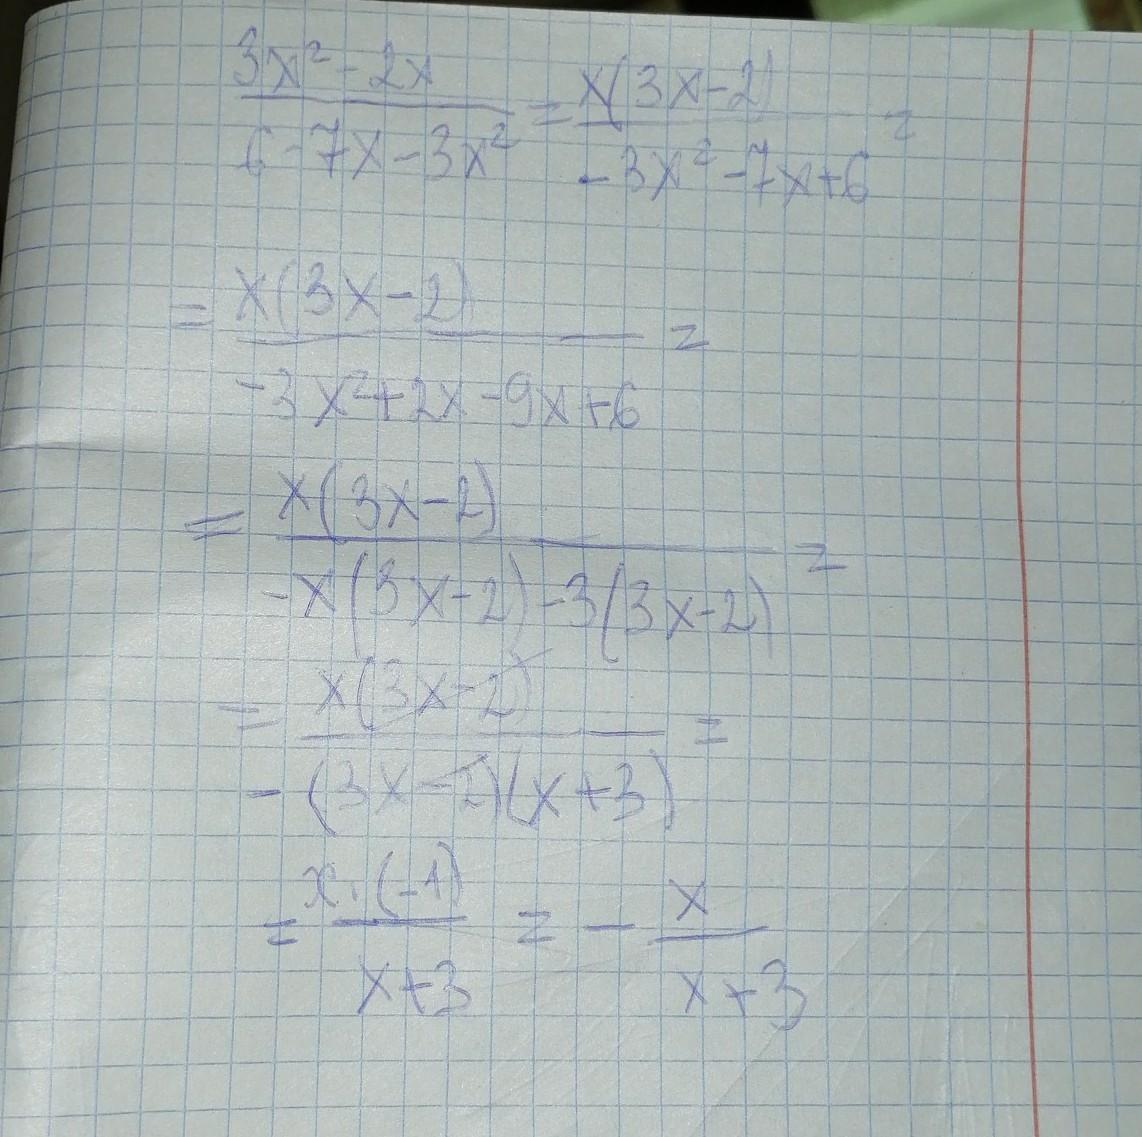 3x² - 2x / 6 - 7x - 3x² = x(3x-2) / -3x² - 7x + 6 =
= x(3x-2) / -3x² + 2x - 9x + 6 =
= x(3x-2) / -x(3x-2) - 3(3x-2) =
= x(3x-2) / -(3x-2)(x+3) =
= x·(-1) / x+3 = - x / x+3